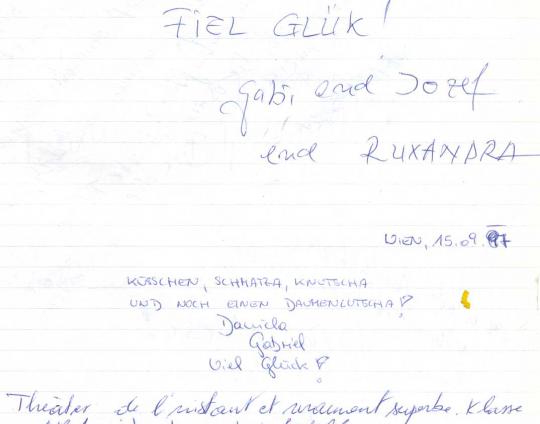 FIEL GLÜK!
Gabi end Jozef
end RUXANDRA
WIEN, 15.09.97
KÜSSCHEN, SCHMATZA, KNUTSCHA
UND NOCH EINEN DAUMENLUTSCHA!
Daniela
Gabriel
Viel Glück!
Théâter de l'instant et vraiment superbe. Klasse